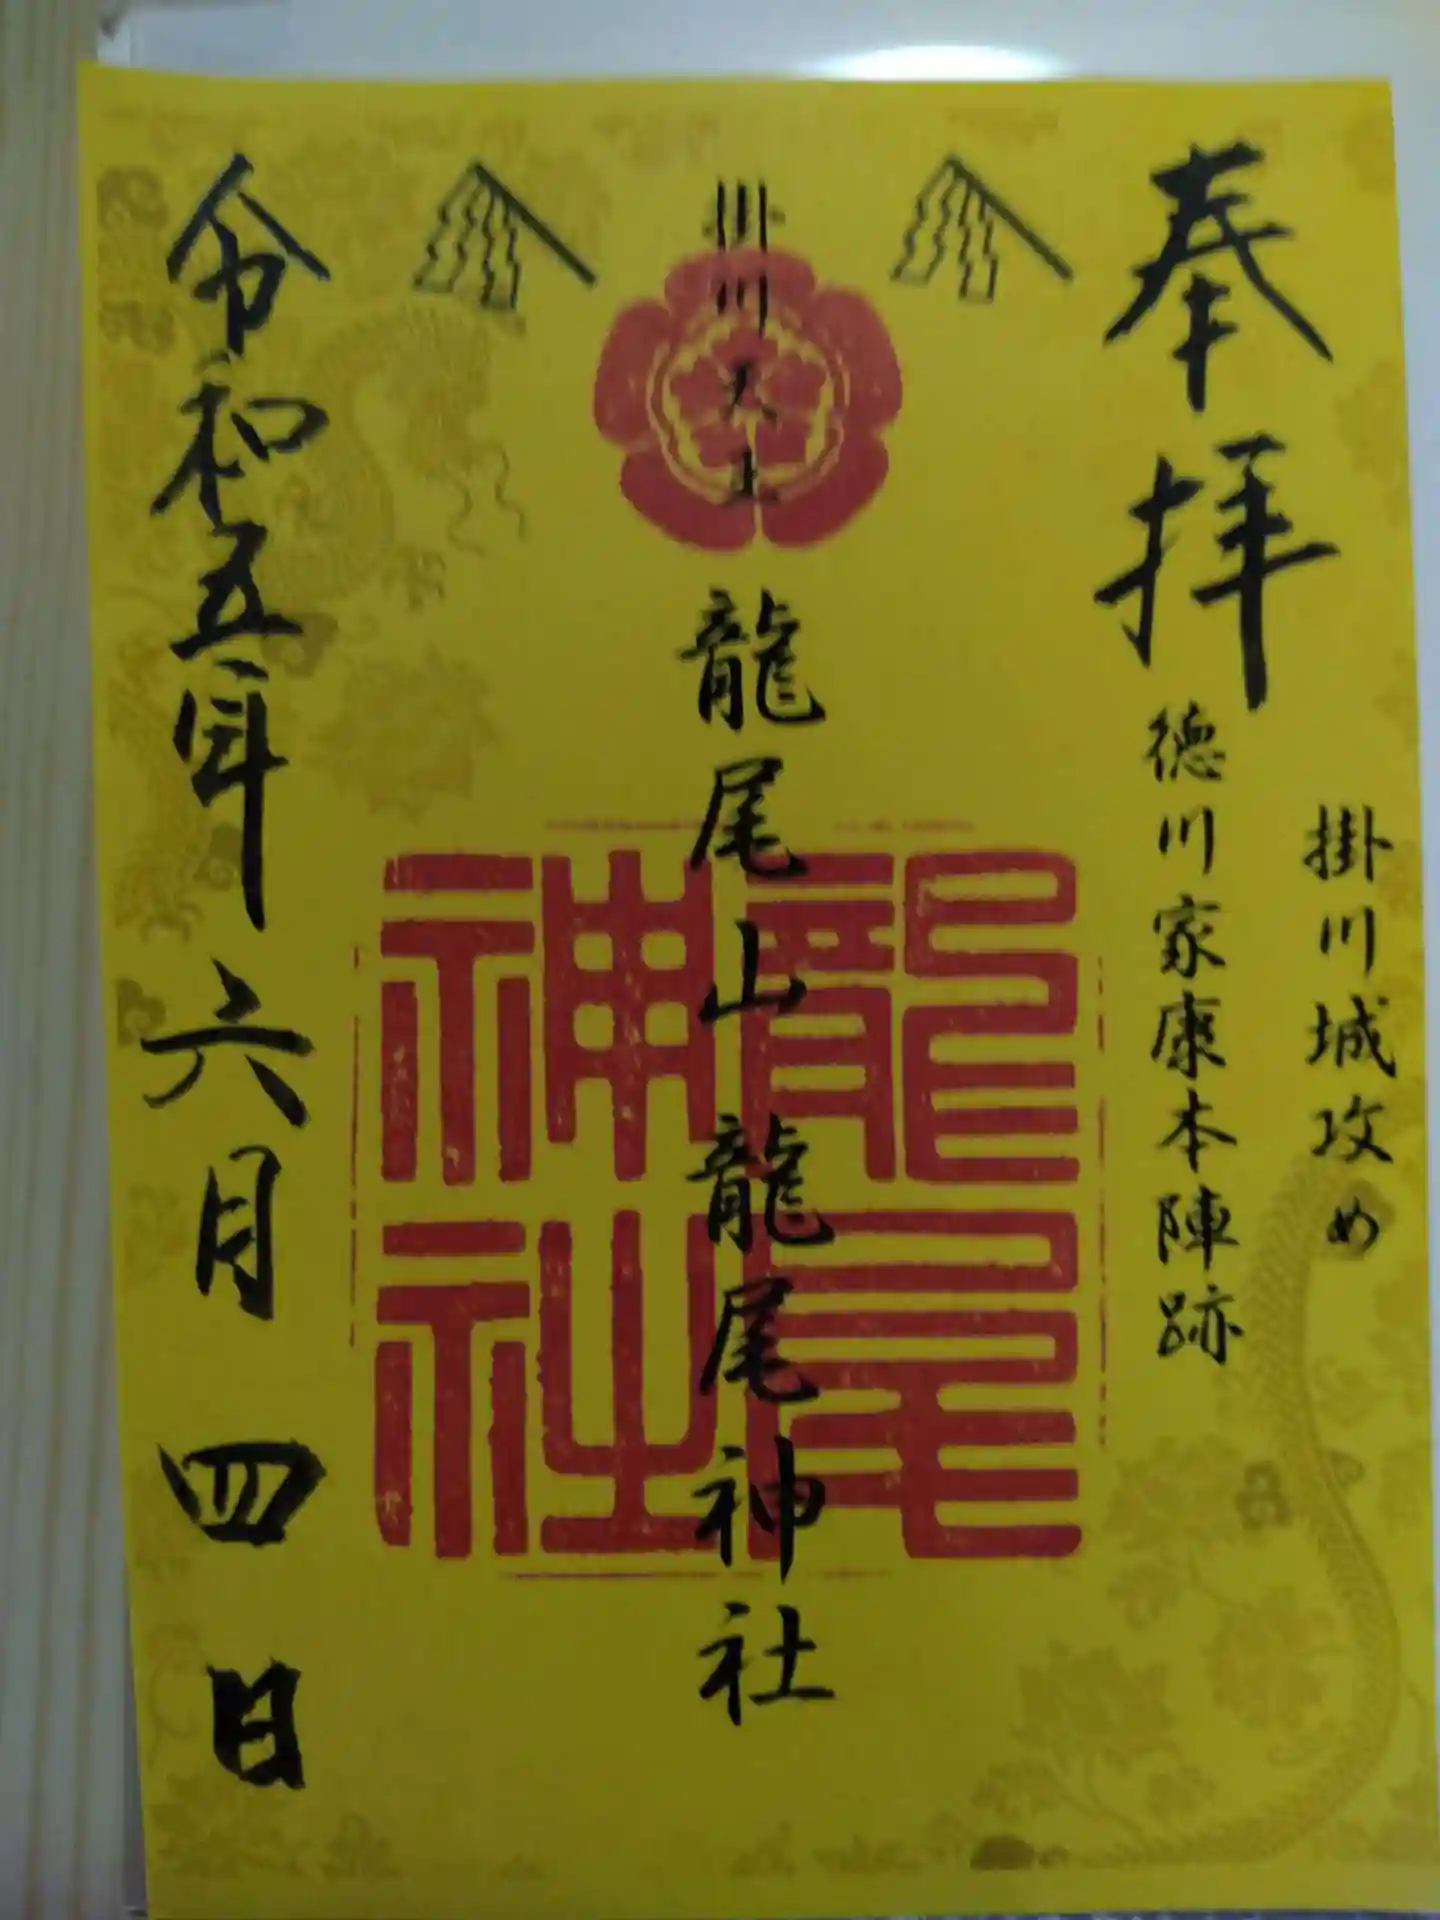 奉拝
掛川城攻め
徳川家康本陣跡
掛川天王
龍尾山龍尾神社
龍尾
神社
令和五年六月四日